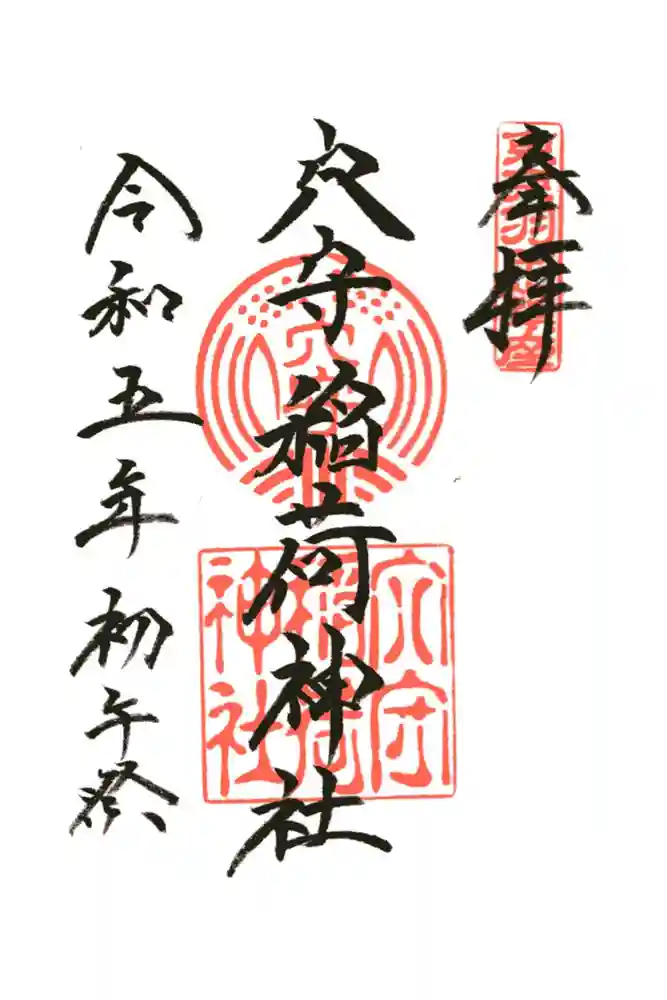 奉拝
穴守稲荷神社
令和五年初午祭
穴守
稲荷
神社